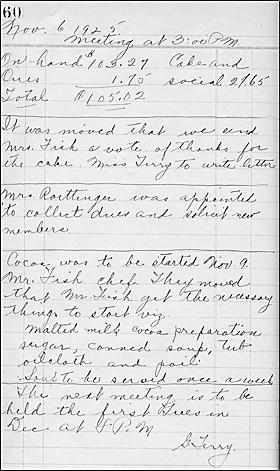 60
Nov. 6 1925
Meeting at 3:00 P.M.
On hand $103.27 Cake and
Dues 1.75 social 21.65
Total $105.02
It was moved that we send
Mrs. Fish a vote of thanks for
the cake. Miss Terry to write letter
Mrs Roettinger was appointed
to collect dues and solicit new
members.
Cocoa was to be started Nov. 9.
Mr. Fish chef. They moved
that Mr. Fish get the necessay
things to start viz.
Malted milk cocoa preparation
sugar, canned soup, tub
oilcloth and pail
Soup to be served once a week
The next meeting is to be
held the first Tues in
Dec at P.M
G. Terry.